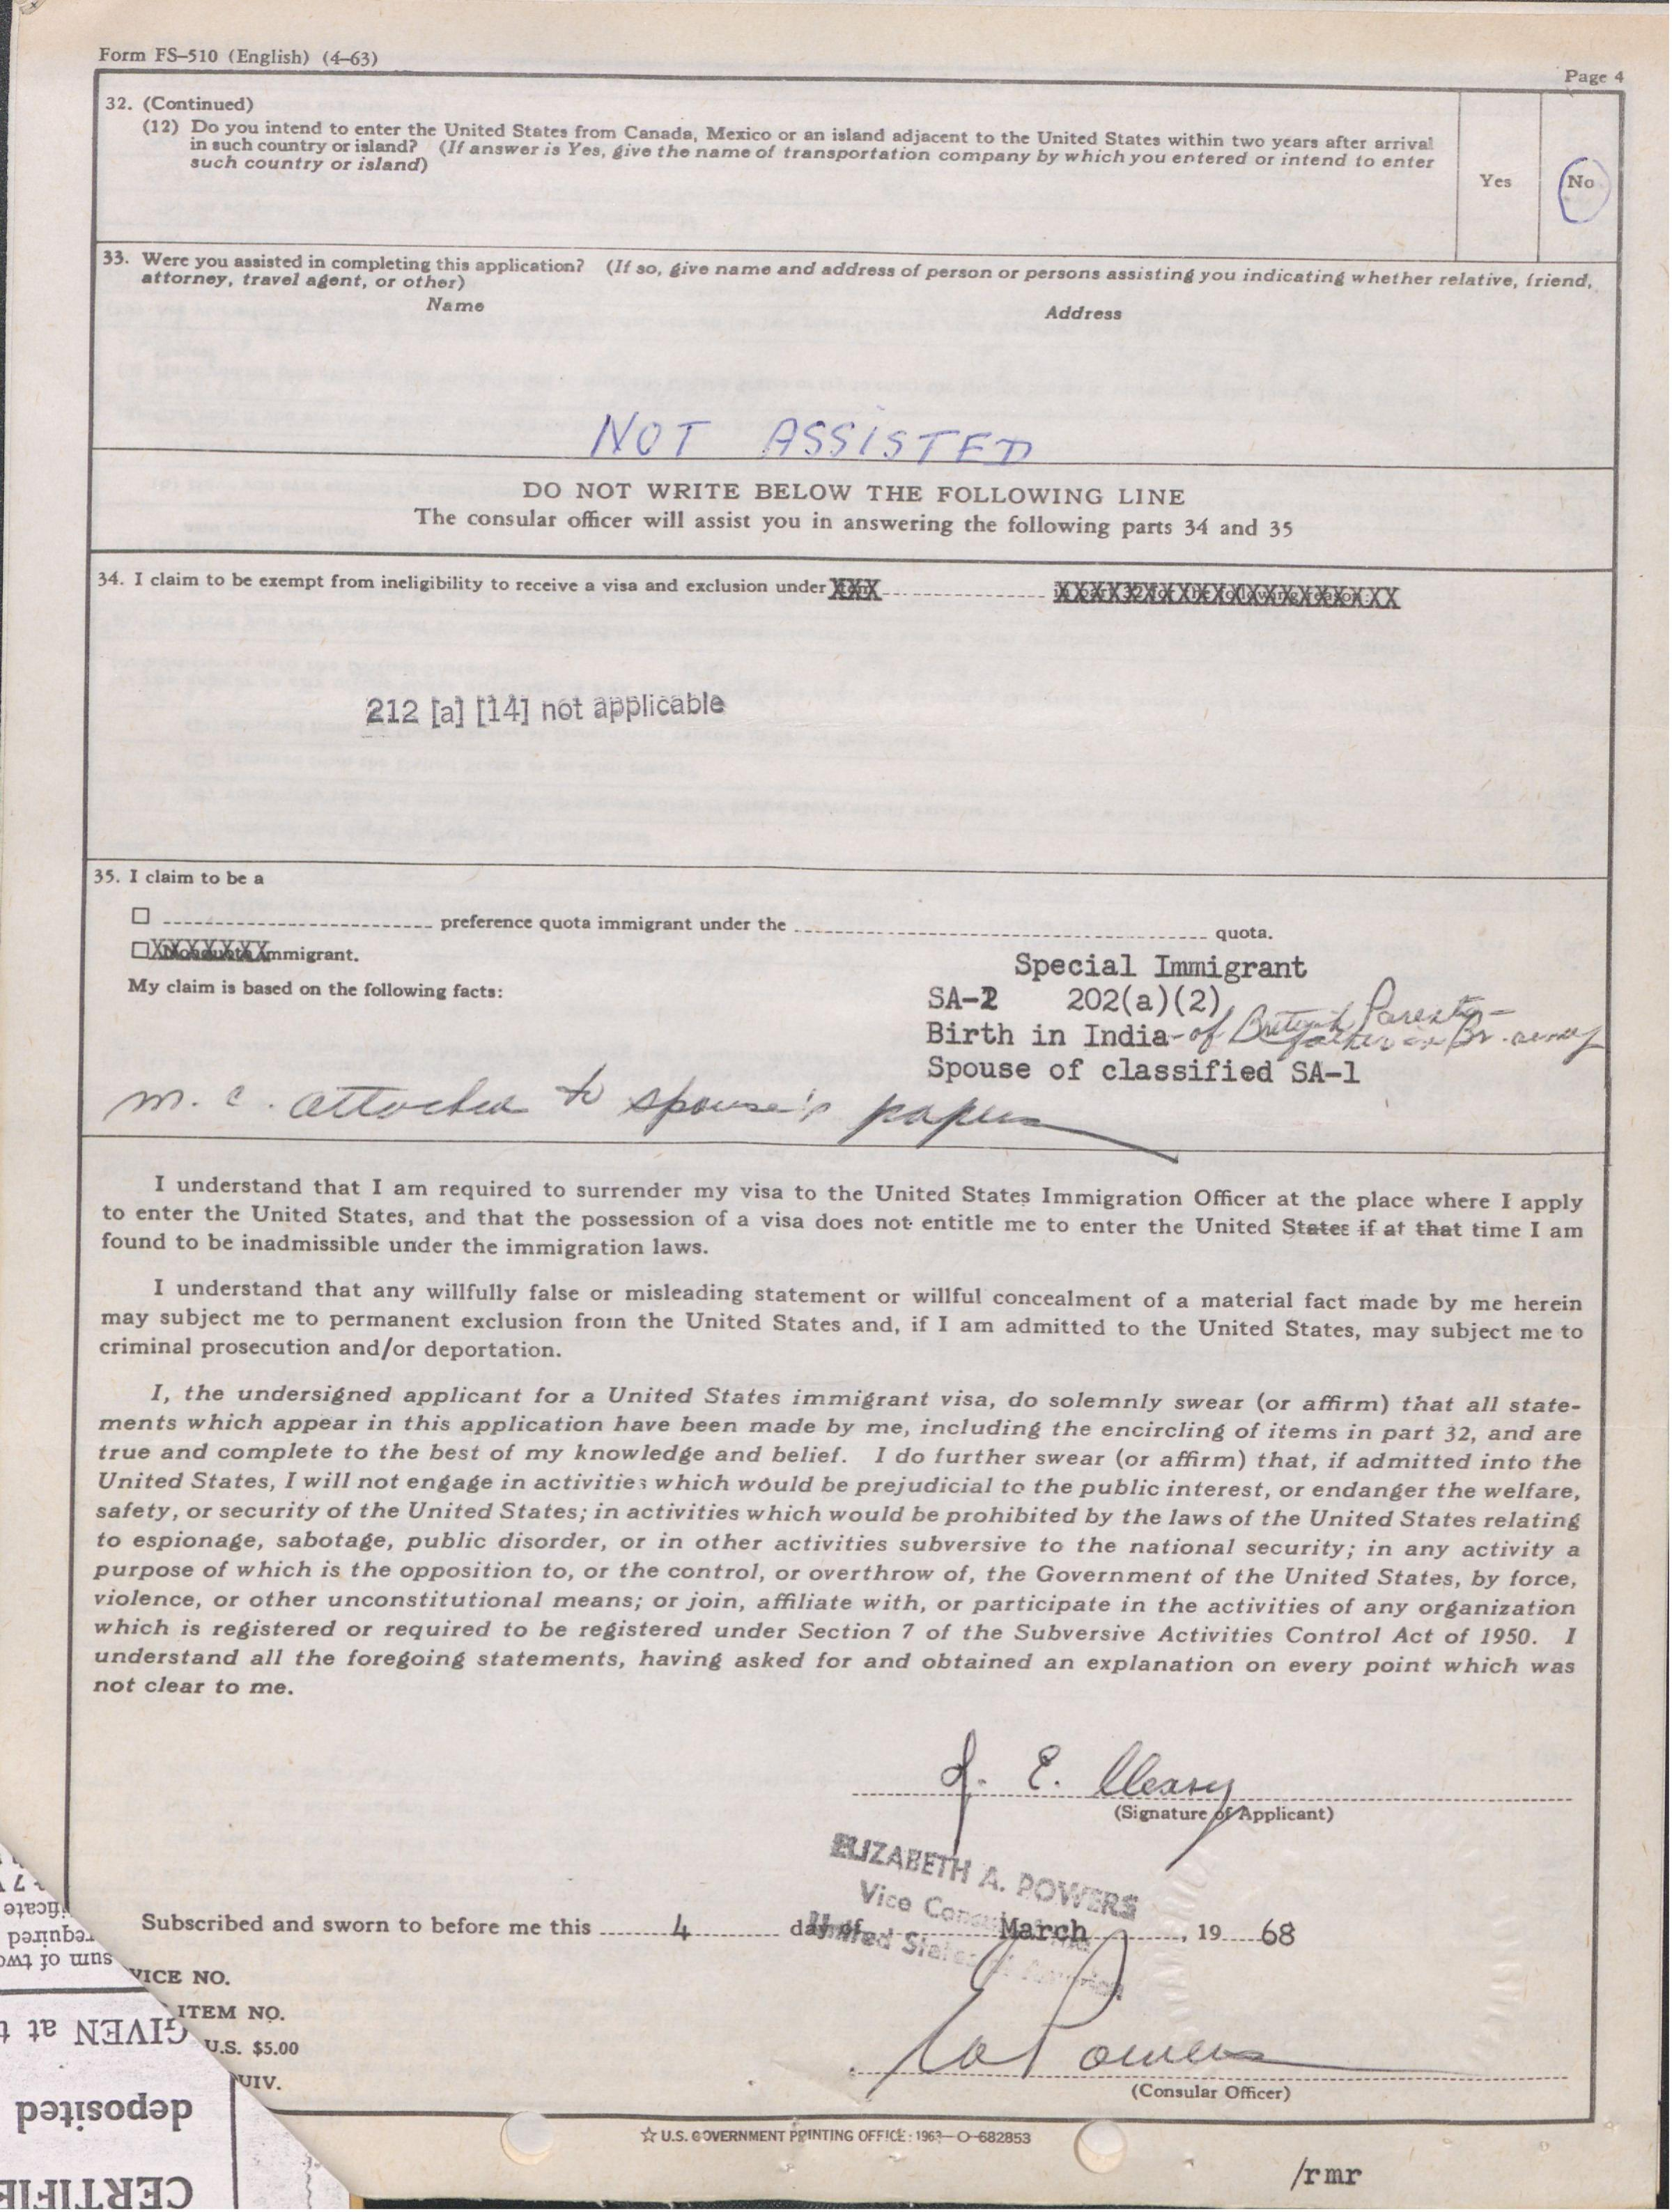 Form FS-510 (English) (4-63)
Page 4
32. (Continued)
(12) Do you intend to enter the United States from Canada, Mexico or an island adjacent to the United States within two years after arrival
in such country or island? (If answer is Yes, give the name of transportation company by which you entered or intend to enter
such country or island)
Yes
No
33. Were you assisted in completing this application? (If so, give name and address of person or persons assisting you indicating whether relative, friend,
attorney, travel agent, or other)
Name
Address
NOT ASSISTED
DO NOT WRITE BELOW THE FOLLOWING LINE
The consular officer will assist you in answering the following parts 34 and 35
34. I claim to be exempt from ineligibility to receive a visa and exclusion under XXX XXXXXXXXXXXXXXXXXXXX
212 [a] [14] not applicable
35. I claim to be a
preference quota immigrant under the quota.
immigrant.
Special Immigrant
My claim is based on the following facts:
SA-2 202(a)(2)
Birth in India-of British Parents-
father in Br. army
Spouse of classified SA-1
m. c. attached to spouse's papers
I understand that I am required to surrender my visa to the United States Immigration Officer at the place where I apply
to enter the United States, and that the possession of a visa does not entitle me to enter the United States if at that time I am
found to be inadmissible under the immigration laws.
I understand that any willfully false or misleading statement or willful concealment of a material fact made by me herein
may subject me to permanent exclusion from the United States and, if I am admitted to the United States, may subject me to
criminal prosecution and/or deportation.
I, the undersigned applicant for a United States immigrant visa, do solemnly swear (or affirm) that all state-
ments which appear in this application have been made by me, including the encircling of items in part 32, and are
true and complete to the best of my knowledge and belief. I do further swear (or affirm) that, if admitted into the
United States, I will not engage in activities which would be prejudicial to the public interest, or endanger the welfare,
safety, or security of the United States; in activities which would be prohibited by the laws of the United States relating
to espionage, sabotage, public disorder, or in other activities subversive to the national security; in any activity a
purpose of which is the opposition to, or the control, or overthrow of, the Government of the United States, by force,
violence, or other unconstitutional means; or join, affiliate with, or participate in the activities of any organization
which is registered or required to be registered under Section 7 of the Subversive Activities Control Act of 1950. I
understand all the foregoing statements, having asked for and obtained an explanation on every point which was
not clear to me.
J. E. Cleary
(Signature of Applicant)
ELIZABETH A. POWERS
Vice Consul
United States of America
Subscribed and sworn to before me this 4 day of March, 19 68
VICE NO.
ITEM NO.
U.S. $5.00
UIV.
EaPowers
(Consular Officer)
☆ U.S. GOVERNMENT PRINTING OFFICE: 1963-O-682853
/rmr
ificate
required
sum of two
GIVEN at t
deposited
CERTIFIE